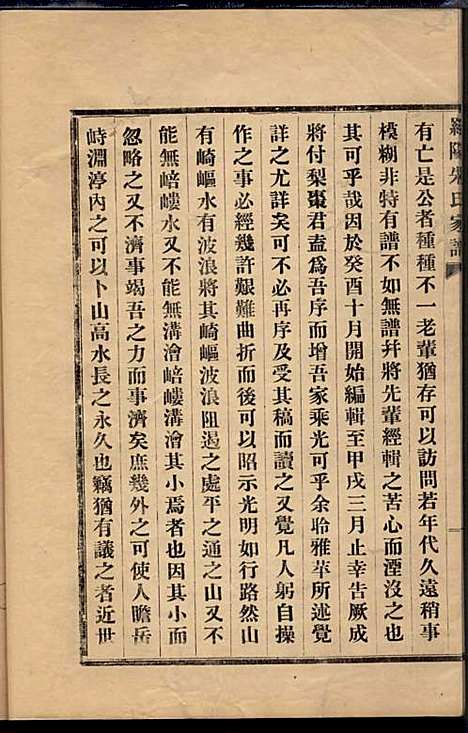 有亡是公者種種不一老輩猶存可以訪問若年代久遠稍事
模糊非特有譜不如無譜幷將先輩經輯之苦心而湮沒之也
其可乎哉因於癸酉十月開始編輯至甲戌三月止幸告厥成
將付梨棗君盍為吾序而增吾家乘光可乎余聆雅莘所述覺
詳之尤詳矣可不必再序及受其稿而讀之又覺凡人躬自操
作之事必經幾許艱難曲折而後可以昭示光明如行路然山
有崎嶇水有波浪將其崎嶇波浪阻遏之處平之通之山又不
能無峿嶁水又不能無溝澮峿嶁溝澮其小焉者也因其小而
忽略之又不濟事竭吾之力而事濟矣庶幾外之可使人瞻岳
峙淵渟內之可以卜山高水長之永久也竊猶有議之者近世